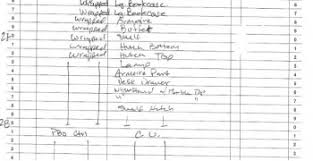 Wrapped Lg Bookcase
Wrapped Lg Bookcase
Wrapped Armoire
Wrapped Buffet
Wrapped Shelf
Wrapped Hutch Bottom
Wrapped Hutch Top
Lamp
Armoire Part
Desk Drawer
Marble Top
" "
Small Hutch
PBO Ctn C.U.